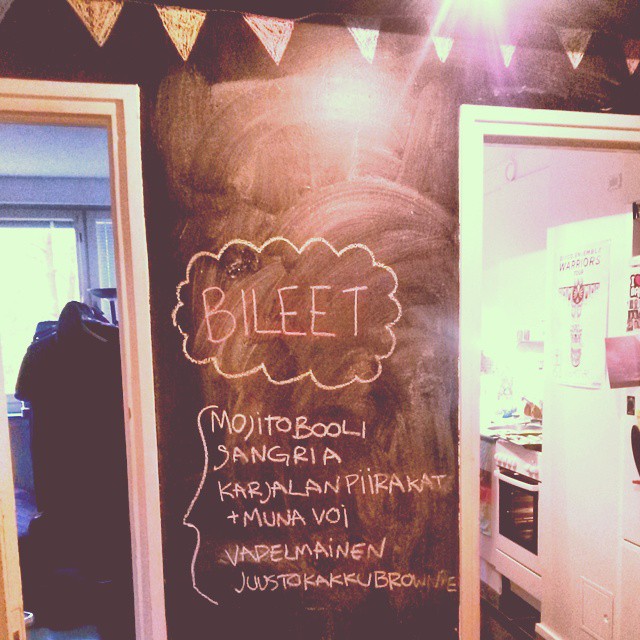 BILEET
MOJITOBOOLI
SANGRIA
KARJALANPIIRAKAT
+MUNA VOI
VADELMAINEN
JUUSTOKAKKUBROWNIE
WARRIORS